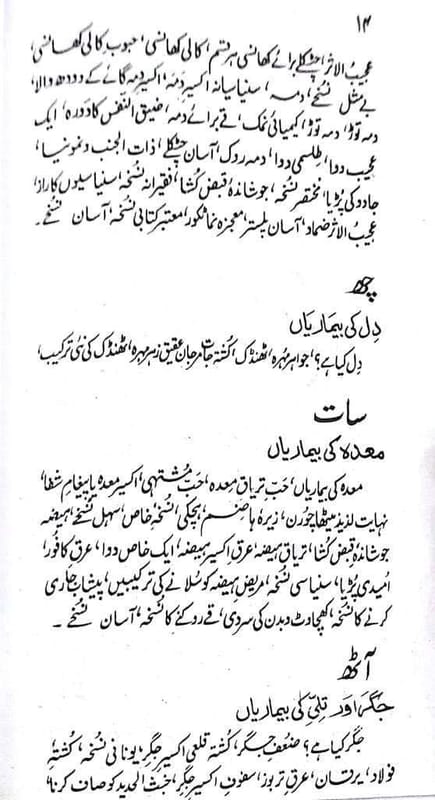 ۱۴
عجیبُ الاثر چٹکلے برائے کھانسی ہر قسم، کالی کھانسی، حبوبِ کالی کھانسی،
بے مثل نسخے، دمہ، سنیاسیانہ اکسیرِ دمہ، اکسیرِ دمہ گائے کے دودھ والا،
دمہ توڑ، دمہ توڑ، کیمیائی نمک، قے برائے دمہ، ضیق النفس کا دَورہ، ایک
عجیب دوا، طلِسمی دوا، دمہ روک، آسان چٹکلے، ذات الجنب و نمونیا،
جادو کی پُڑیا، مختصر نسخہ، جوشاندۂ قبض کشا، فقیرانہ نسخہ، سنیاسیوں کا راز،
عجیبُ الاثر ضماد، آسان پلستر، معجزہ نما ٹکور، معتبر کتابی نسخہ، آسان نسخے۔
چھ
دِل کی بیماریاں
دِل کیا ہے؟، جواہر مہرہ، ٹھنڈک، کشتہ جات مرجان عقیق زہر مہرہ، ٹھنڈک کی نئی ترکیب،
سات
معدہ کی بیماریاں
معدہ کی بیماریاں، حَبِّ تریاقِ معدہ، حَبِّ مُشتہی، اکسیرِ معدہ یا پیغامِ شفا،
نہایت لذیذ میٹھا چورن، زیرہ ہاضم، ہچکی، نسخہ خاص، سہل نسخے، ہیضہ
جوشاندہ قبض کشا، تریاقِ ہیضہ، عرقِ اکسیرِ ہیضہ، ایک خاص دوا، عرقِ کافور،
اُمیدی پُڑیا، سنیاسی نسخہ، مریضِ ہیضہ کو سُلانے کی ترکیبیں، پیشاب جاری
کرنے کا نسخہ، کھچاوٹ و بدن کی سردی، قے روکنے کا نسخہ، آسان نسخے۔
آٹھ
جگر اور تلّی کی بیماریاں
جگر کیا ہے؟ ضعفِ جگر، کشتہ قلعی اکسیرِ جگر، یونانی نسخہ، کشتۂ
فولاد، یرقان، عرقِ تربوز، سفوفِ اکسیرِ جگر، خبث الحدید کو صاف کرنا،